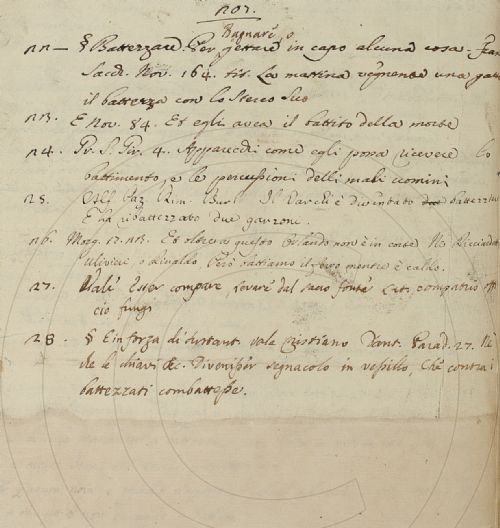 201.
Bagnare, o
22 — § Battezzare. Per gettare in capo alcuna cosa. Fran
Sacch. Nov. 164. tit. La mattina vegnente una gatta
il battezza con lo sterco suo
23. E Nov. 84. Et egli avea il battito della morte
24. Fr. S. Pr. 4. Apparecchi come egli possa ricevere lo
battimento, e le percussioni delli mali uomini
25. Rim. Burl. Il Varchi è diventato battezzato
E ha ribattezzato due garzoni.
26. Morg. 17. Et oltre a questo Orlando non è in corte Nè Ricciardetto
Ulivieri, o Rinaldo, Però battiamo il ferro mentre è caldo.
27. Vale Esser compare, levare dal sacro fonte Lat. compatris
cio fungi
28. § E in forza di sustant. vale Cristiano Dant. Parad. 27. Nè
che le chiavi &c. Divenisser segnacolo in vessillo, Che contra i
battezzati combattesse.